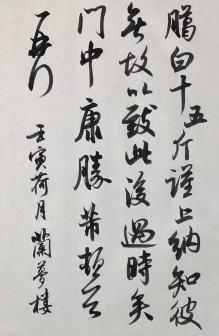 白十五斤謹上納知彼
無故以致此後過時矣
門中康勝芾頓首
壬寅荷月蘭夢樓